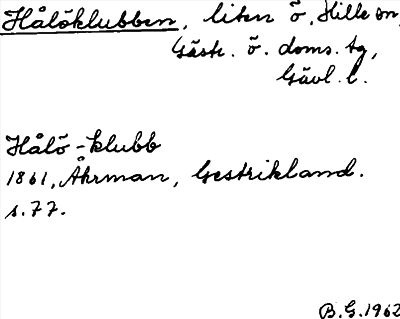 Hålöklubben, liten ö, Hille sn,
Gästr. ö. doms. tg,
Gävl. l.
Hålö-klubb
1861, Åhrman, Gestrikland.
s. 77.
B.G. 1962